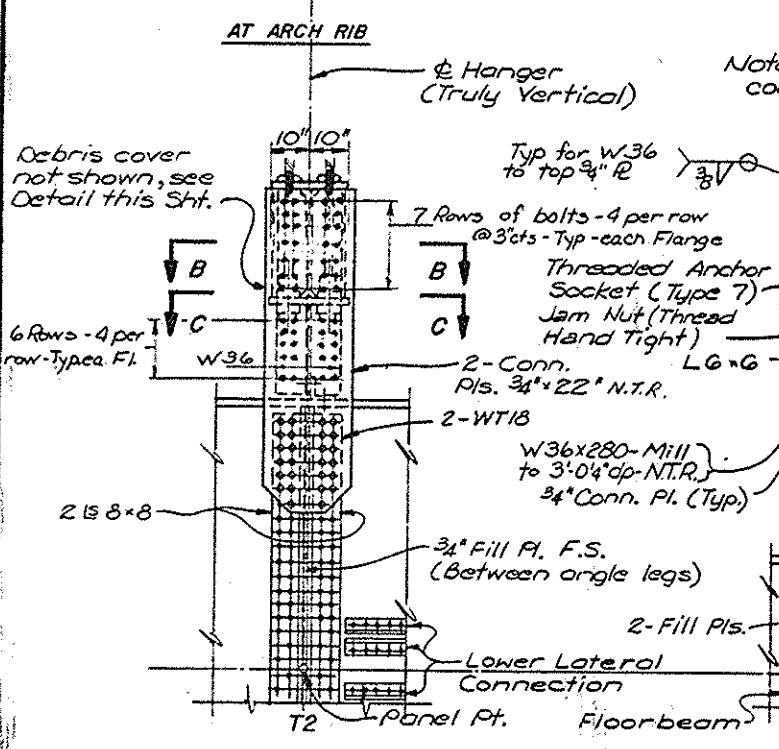 AT ARCH RIB
℄ Hanger
(Truly Vertical)
10" 10"
Debris cover
not shown, see
Detail this Sht.
Typ for W36
to top ¾" ℞
3/8
7 Rows of bolts - 4 per row
@ 3" cts - Typ - each Flange
B B
C C
6 Rows - 4 per
row - Typ ea. Fl.
W36
Threaded Anchor
Socket (Type 7)
Jam Nut (Thread
Hand Tight)
L6×6
2-Conn.
Pls. ¾" × 22" N.T.R.
2-WT18
W36×280-Mill
to 3'-0¼" dp-N.T.R.
¾" Conn. Pl. (Typ.)
2 Ls 8×8
¾" Fill Pl. F.S.
(Between angle legs)
2-Fill Pls.
Lower Lateral
Connection
T2
Panel Pt.
Floorbeam